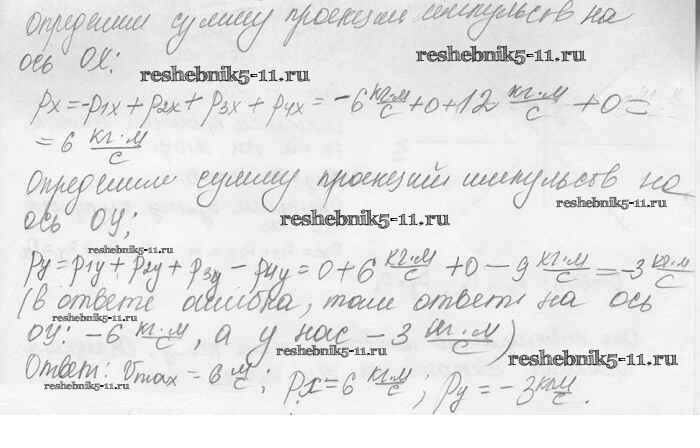 Определим сумму проекций импульсов на
ось OX:
reshebnik5-11.ru
reshebnik5-11.ru
pх = -p1х + p2х + p3х + p4х = -6 кг·м/с + 0 + 12 кг·м/с + 0 =
= 6 кг·м/с
Определим сумму проекций импульсов на
reshebnik5-11.ru
ось OY;
reshebnik5-11.ru
reshebnik5-11.ru
py = p1y + p2y + p3y - p4y = 0 + 6 кг·м/с + 0 - 9 кг·м/с = -3 кг·м/с
(В ответе ошибка, там ответ на ось
reshebnik5-11.ru
OY: -6 кг·м/с, а у нас -3 кг·м/с)
reshebnik5-11.ru
reshebnik5-11.ru
Ответ: vmax = 6 м/с; px = 6 кг·м/с; py = -3 кгм/с.
reshebnik5-11.ru